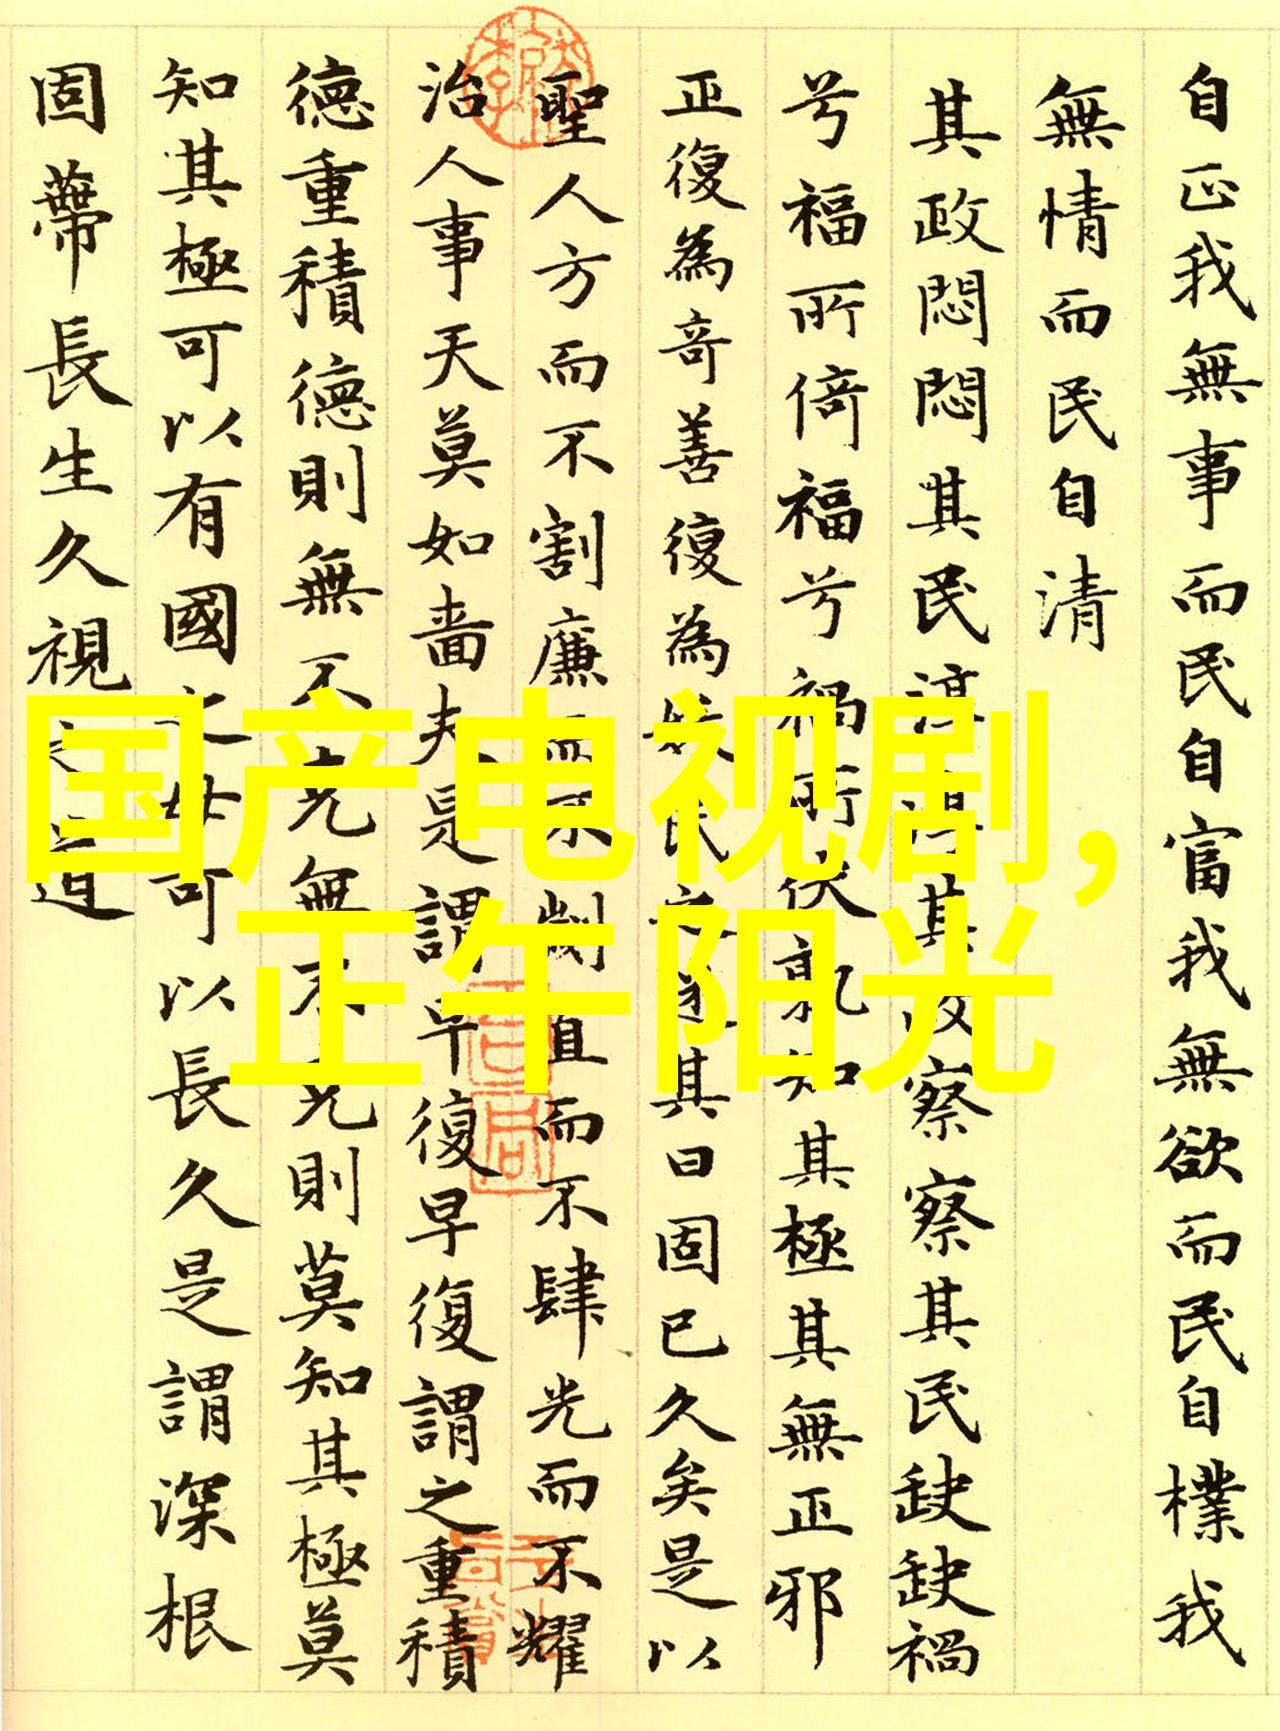 自正我無事而民自富我無欲而民自樸我
無情而民自清
其政悶悶其民淳淳其政察察其民缺缺禍
兮福所倚福兮禍所伏孰知其極其無正邪
正復為奇善復為妖民之迷其日固已久矣是以
聖人方而不割廉而不劌直而不肆光而不耀
治人事天莫如嗇夫是謂早復早復謂之重積
德重積德則無不克無不克則莫知其極莫
知其極可以有國之母可以長久是謂深根
固蔕長生久視之道
国产电视剧，
正午阳光